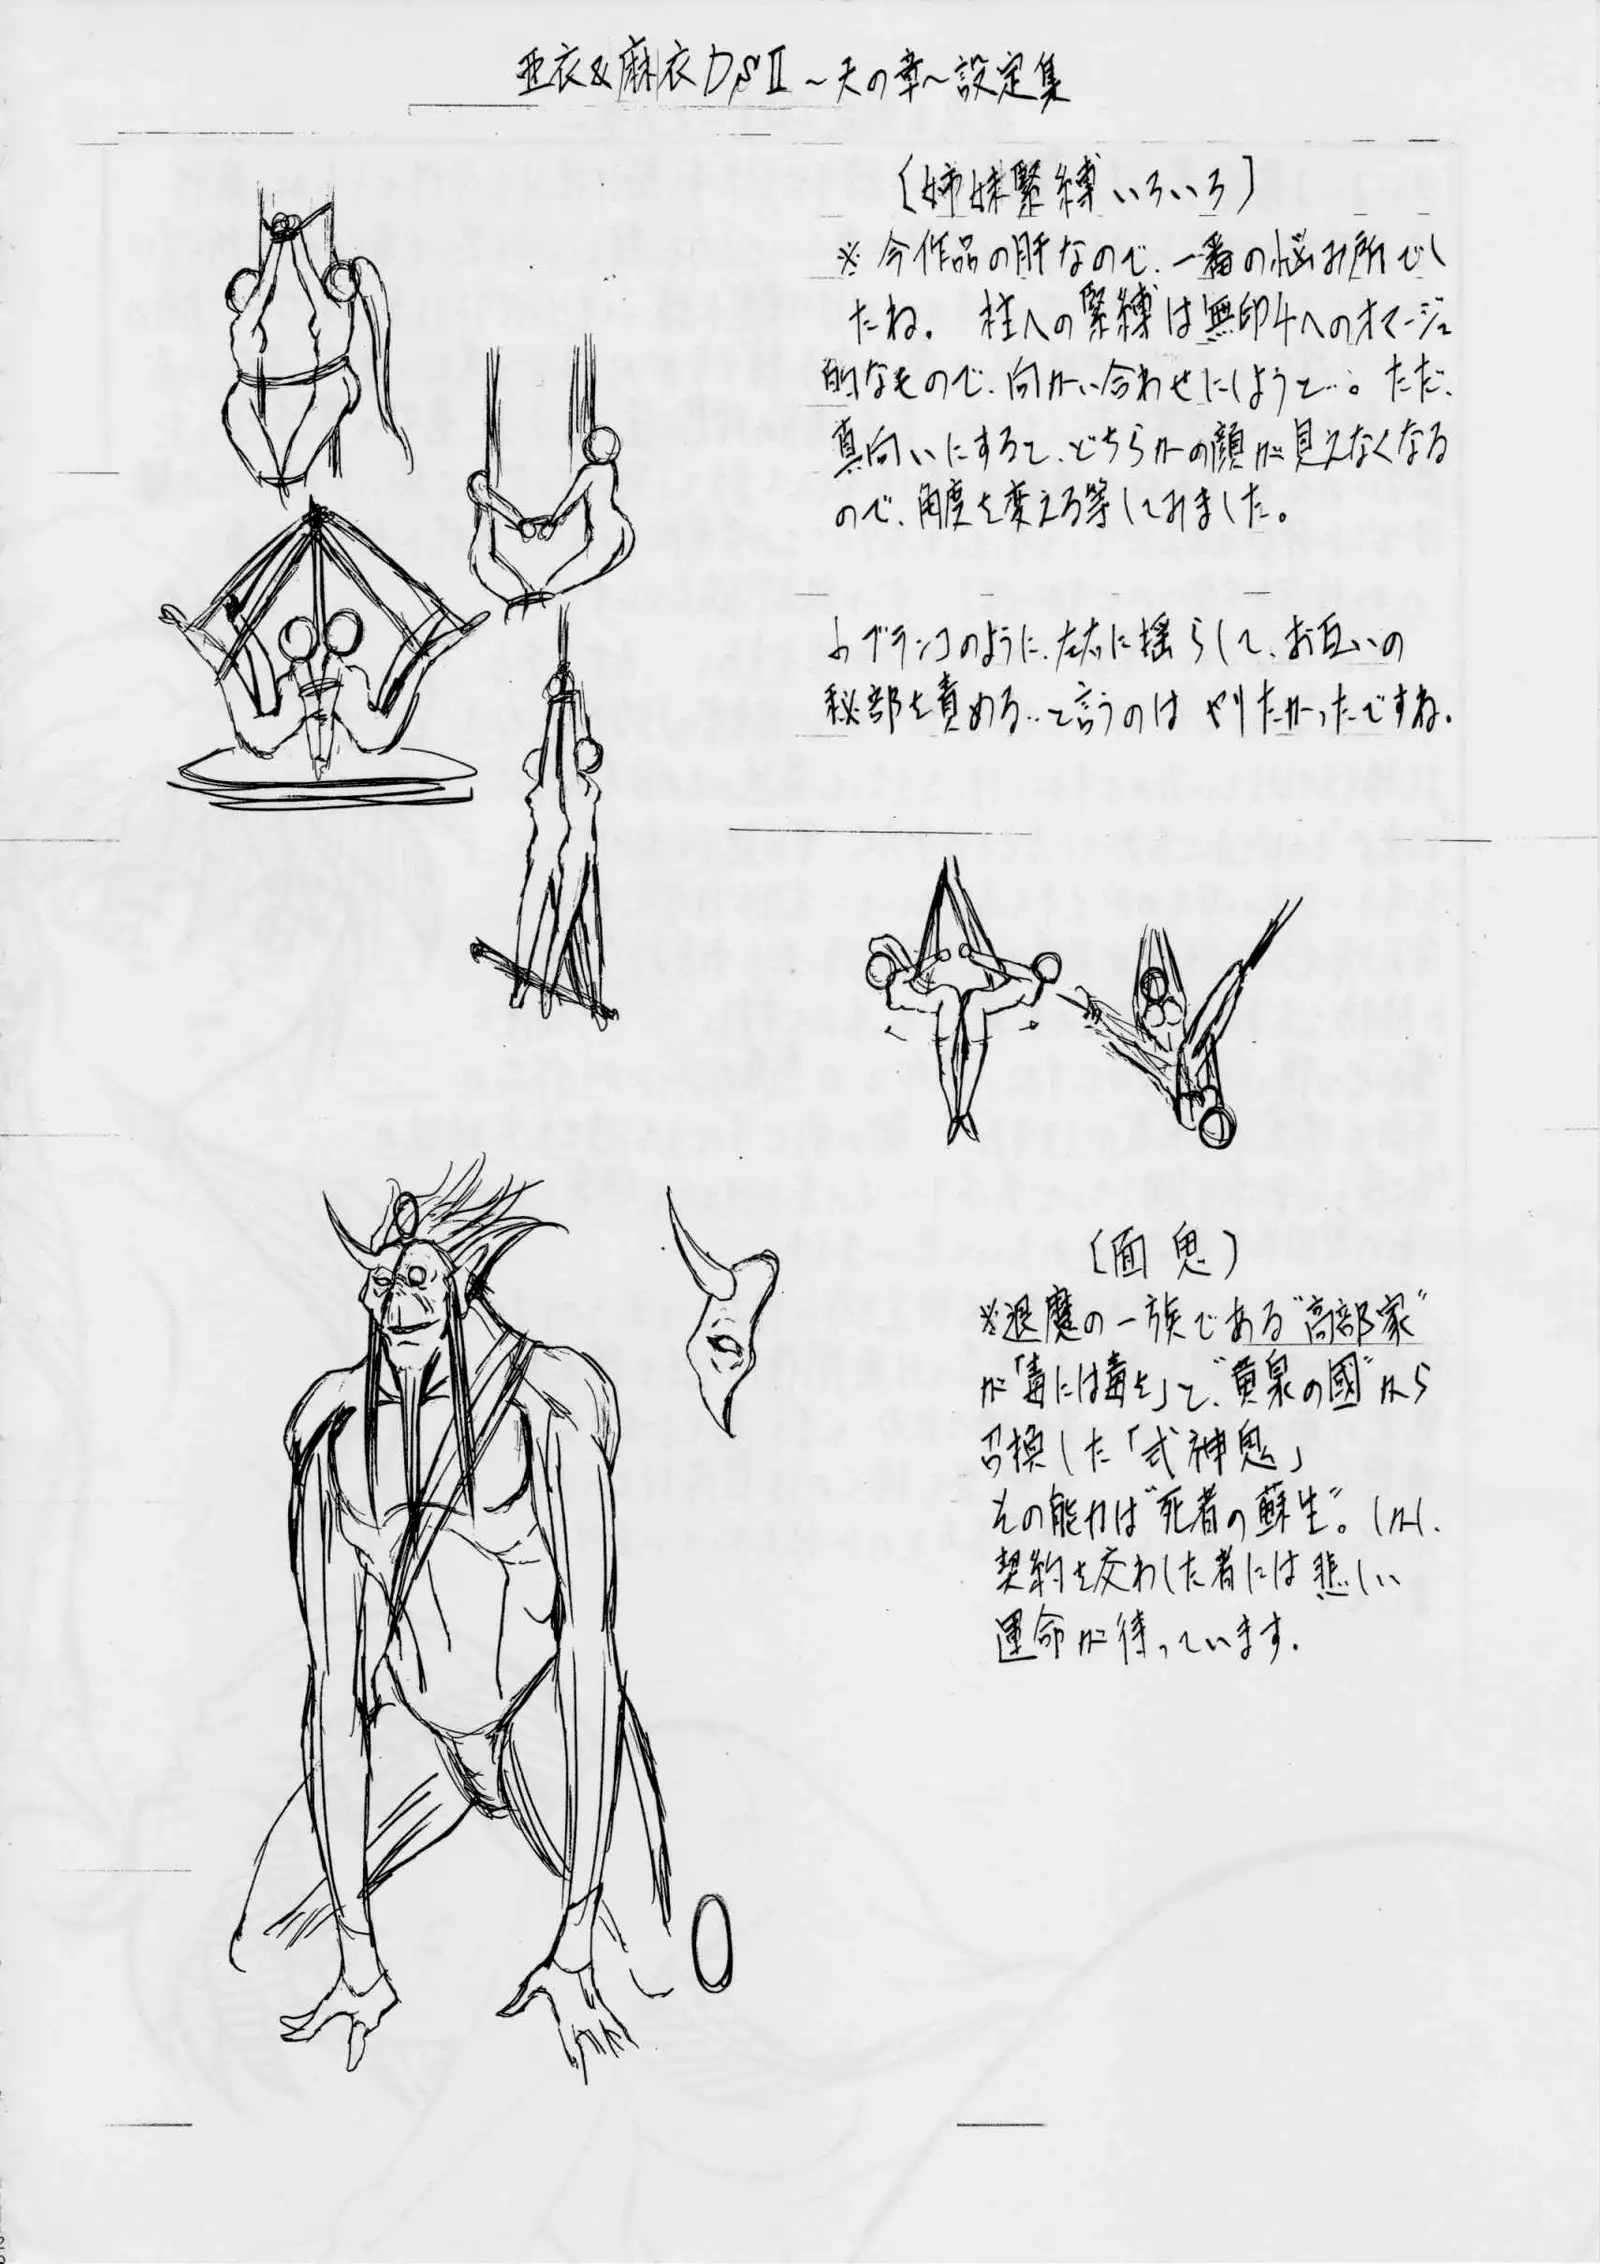 亜衣&麻衣DSⅡ～天の章～設定集
〔姉妹緊縛いろいろ〕
※今作品の肝なので、一番の悩み所でし
たね。柱への緊縛は無印4へのオマージュ
的なもので、向かい合わせにしようと…。ただ、
真向いにすると、どちらかの顔が見えなくなる
ので、角度を変える等してみました。
ブランコのように、左右に揺らして、お互いの
秘部を責める…と言うのはやりたかったですね。
〔面鬼〕
※退魔の一族である"高部家"
が「毒には毒を」と、"黄泉の國"から
召換した「式神鬼」
その能力は"死者の蘇生"。しかし、
契約を交わした者には悲しい
運命が待っています。